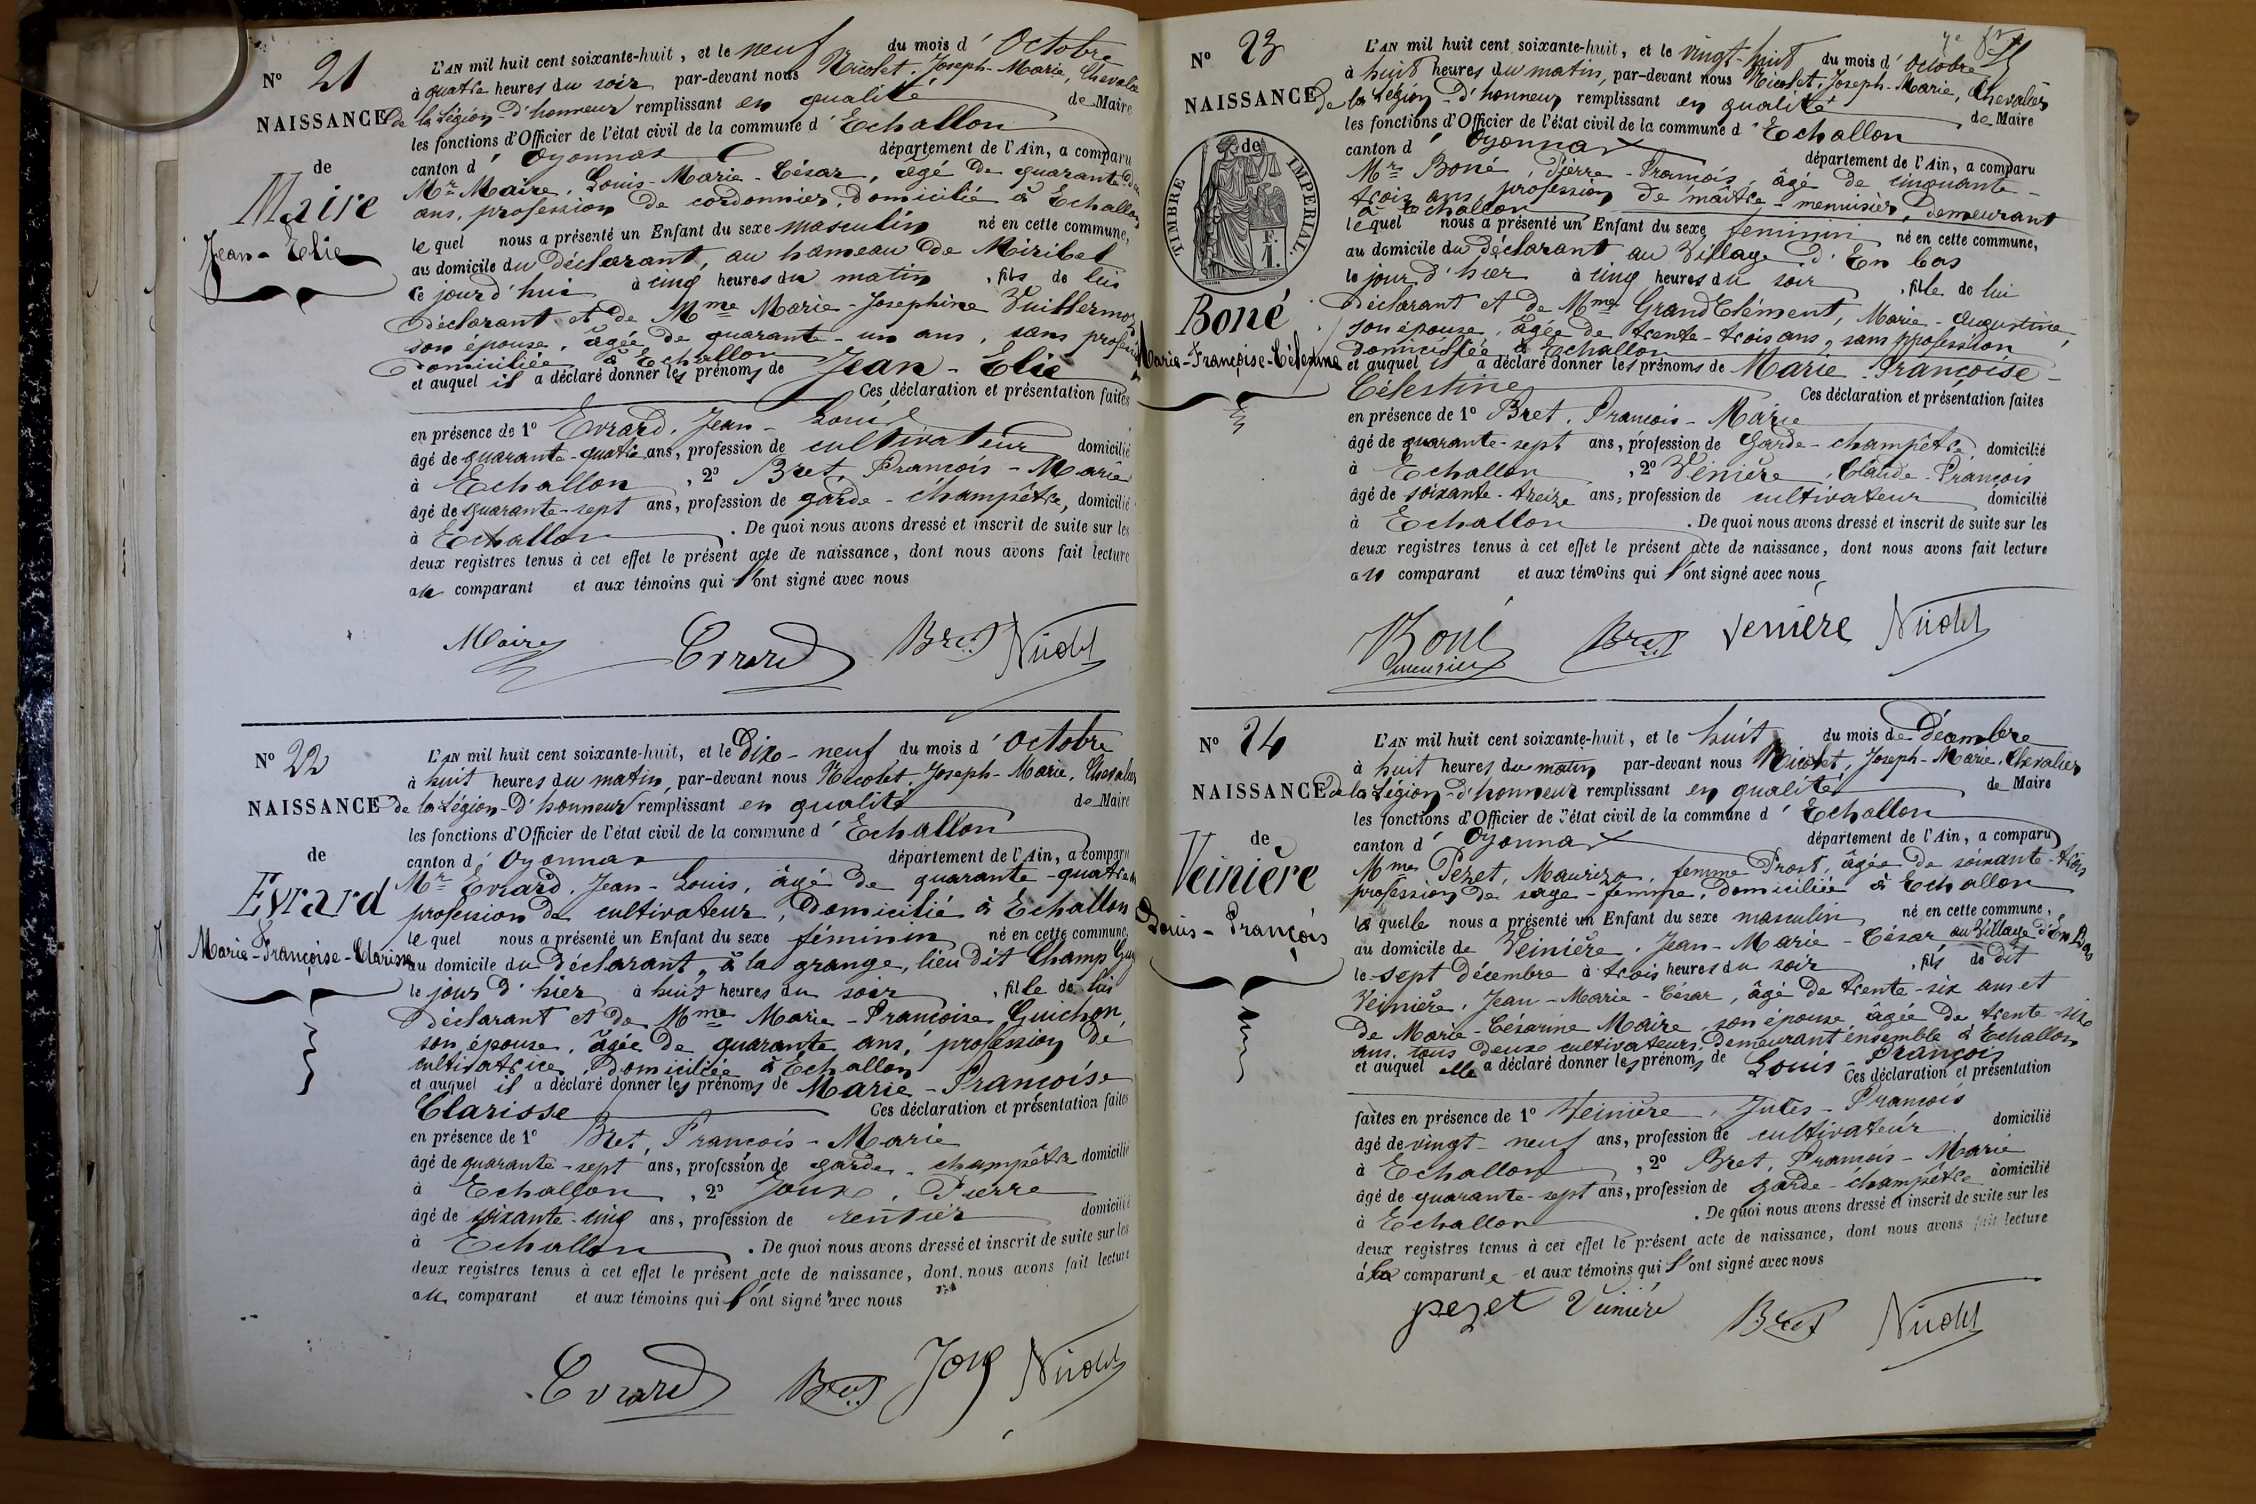 N° 21
NAISSANCE
de
Maire
Jean-Elie
L'AN mil huit cent soixante-huit, et le neuf du mois d'Octobre
à quatre heures du soir par-devant nous Nicolet, Joseph-Marie, Chevalier
de la Légion-d'honneur remplissant en qualité de Maire
les fonctions d'Officier de l'état civil de la commune d'Echallon
canton d'Oyonnax département de l'Ain, a comparu
Mr Maire, Louis-Marie-César, âgé de quarante-deux
ans, profession de cordonnier, domicilié à Echallon
lequel nous a présenté un Enfant du sexe masculin né en cette commune,
au domicile du déclarant, au hameau de Miribel
ce jourd'hui à cinq heures du matin, fils de lui
déclarant et de Mme Marie-Josephine Vuillermoz
son épouse, âgée de quarante-un ans, sans profession
domiciliée à Echallon
et auquel il a déclaré donner les prénoms de Jean-Elie
Ces déclaration et présentation faites
en présence de 1° Evrard, Jean-Louis
âgé de quarante-quatre ans, profession de cultivateur domicilié
à Echallon, 2° Bret, François-Marie
âgé de quarante-sept ans, profession de garde-champêtre, domicilié
à Echallon. De quoi nous avons dressé et inscrit de suite sur les
deux registres tenus à cet effet le présent acte de naissance, dont nous avons fait lecture
au comparant et aux témoins qui l'ont signé avec nous
Maire Evrard Bret Nicolet
N° 22
NAISSANCE
de
Evrard
Marie-Françoise-Clarisse
L'AN mil huit cent soixante-huit, et le dix-neuf du mois d'Octobre
à huit heures du matin, par-devant nous Nicolet Joseph-Marie, Chevalier
de la Légion-d'honneur remplissant en qualité de Maire
les fonctions d'Officier de l'état civil de la commune d'Echallon
canton d'Oyonnax département de l'Ain, a comparu
Mr Evrard, Jean-Louis, âgé de quarante-quatre ans
profession de cultivateur, domicilié à Echallon
lequel nous a présenté un Enfant du sexe féminin né en cette commune,
au domicile du déclarant, à la grange, lieu dit Champ
le jour d'hier à huit heures du soir, fille de lui
déclarant et de Mme Marie-Françoise Guichon,
son épouse, âgée de quarante ans, profession de
cultivatrice, domiciliée à Echallon
et auquel il a déclaré donner les prénoms de Marie-Françoise
Clarisse Ces déclaration et présentation faites
en présence de 1° Bret, François-Marie
âgé de quarante-sept ans, profession de garde-champêtre domicilié
à Echallon, 2° Joux, Pierre
âgé de soixante-cinq ans, profession de rentier domicilié
à Echallon. De quoi nous avons dressé et inscrit de suite sur les
deux registres tenus à cet effet le présent acte de naissance, dont nous avons fait lecture
au comparant et aux témoins qui l'ont signé avec nous
Evrard Bret Joux Nicolet
N° 23
NAISSANCE
de
TIMBRE IMPERIAL
Boné
Marie-Françoise-Célestine
L'AN mil huit cent soixante-huit, et le vingt-huit du mois d'Octobre
à huit heures du matin, par-devant nous Nicolet, Joseph-Marie, Chevalier
de la Légion-d'honneur remplissant en qualité de Maire
les fonctions d'Officier de l'état civil de la commune d'Echallon
canton d'Oyonnax département de l'Ain, a comparu
Mr Boné, Pierre-François, âgé de cinquante-
trois ans, profession de maître-menuisier, demeurant
à Echallon
lequel nous a présenté un Enfant du sexe féminin né en cette commune,
au domicile du déclarant au Village d'En bas
le jour d'hier à cinq heures du soir, fille de lui
déclarant et de Mme GrandClément, Marie-Augustine,
son épouse, âgée de trente-trois ans, sans profession
domiciliée à Echallon
et auquel il a déclaré donner les prénoms de Marie-Françoise-
Célestine Ces déclaration et présentation faites
en présence de 1° Bret, François-Marie
âgé de quarante-sept ans, profession de garde-champêtre, domicilié
à Echallon, 2° Venière, Claude-François
âgé de soixante-treize ans, profession de cultivateur domicilié
à Echallon. De quoi nous avons dressé et inscrit de suite sur les
deux registres tenus à cet effet le présent acte de naissance, dont nous avons fait lecture
au comparant et aux témoins qui l'ont signé avec nous
Boné Bret Venière Nicolet
N° 24
NAISSANCE
de
Veinière
Louis-François
L'AN mil huit cent soixante-huit, et le huit du mois de Décembre
à huit heures du matin par-devant nous Nicolet, Joseph-Marie, Chevalier
de la Légion-d'honneur remplissant en qualité de Maire
les fonctions d'Officier de l'état civil de la commune d'Echallon
canton d'Oyonnax département de l'Ain, a comparu
Mme Pezet, femme Prost, âgée de soixante-trois
profession de sage-femme, domiciliée à Echallon
laquelle nous a présenté un Enfant du sexe masculin né en cette commune,
au domicile de Veinière, Jean-Marie-César au Village d'En Bas
le sept décembre à trois heures du soir, fils de dit
Veinière, Jean-Marie-César, âgé de trente-six ans et
de Marie-Césarine Maire, son épouse âgée de trente-six
ans, tous deux cultivateurs, demeurant ensemble à Echallon
et auquel elle a déclaré donner les prénoms de Louis-François
Ces déclaration et présentation
faites en présence de 1° Veinière, Jules-François
âgé de vingt-neuf ans, profession de cultivateur domicilié
à Echallon, 2° Bret, François-Marie
âgé de quarante-sept ans, profession de garde-champêtre domicilié
à Echallon. De quoi nous avons dressé et inscrit de suite sur les
deux registres tenus à cet effet le présent acte de naissance, dont nous avons fait lecture
à la comparante et aux témoins qui l'ont signé avec nous
pezet Veinière Bret Nicolet